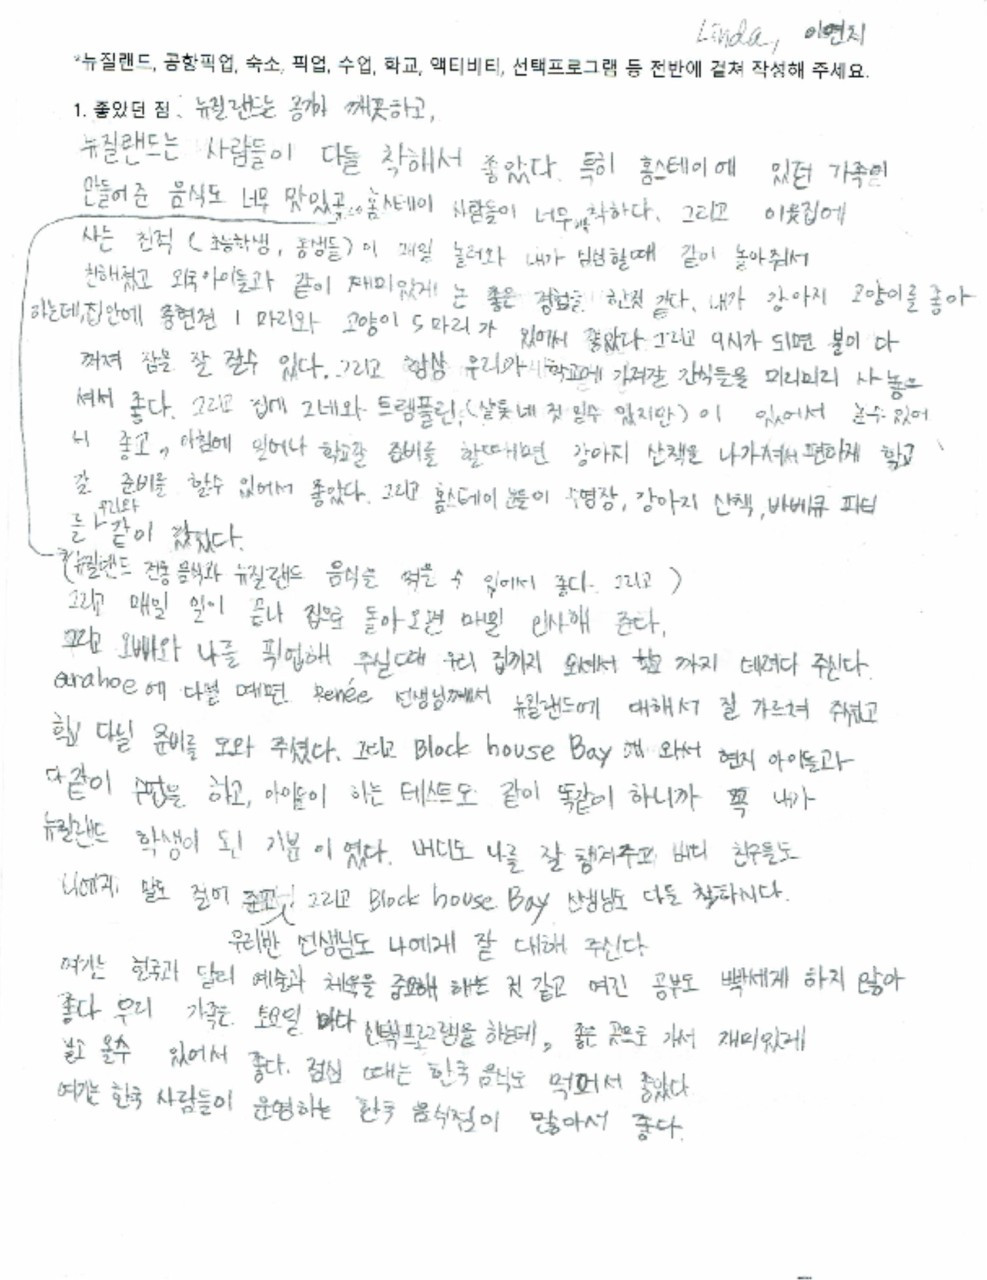 Linda, 이연지
*뉴질랜드, 공항픽업, 숙소, 픽업, 수업, 학교, 액티비티, 선택프로그램 등 전반에 걸쳐 작성해 주세요.
1. 좋았던 점 : 뉴질랜드는 공기가 깨끗하고,
뉴질랜드는 사람들이 다들 착해서 좋았다. 특히 홈스테이에 있던 가족이
만들어 준 음식도 너무 맛있고 홈스테이 사람들이 너무 착하다. 그리고 이웃집에
사는 친척 (초등학생, 동생들)이 매일 놀러와 내가 심심할때 같이 놀아줘서
친해졌고 외국아이들과 같이 재미있게 노는 좋은 경험을 한것 같다. 내가 강아지 고양이를 좋아
하는데, 집안에 중현견 1마리와 고양이 5마리가 있어서 좋았다 그리고 9시가 되면 불이 다
꺼져 잠을 잘 잘수 있다. 그리고 항상 우리가 학교에 가져갈 간식들을 미리미리 사 놓으
셔서 좋다. 그리고 집에 그네와 트램플린, (살짝 네 것 일수 있지만)이 있어서 놀수 있어
서 좋고, 아침에 일어나 학교갈 준비를 할때면 강아지 산책을 나가셔서 편하게 학교
갈 준비를 할수 있어서 좋았다. 그리고 홈스테이 분들이 수영장, 강아지 산책, 바베큐 파티
를 우리와 같이 갔었다.
(뉴질랜드 전통 음식과 뉴질랜드 음식을 먹을 수 있어서 좋다. 그리고)
그리고 매일 일이 끝나 집으로 돌아오면 매일 인사해 준다.
그리고 오빠와 나를 픽업해 주실때 우리 집까지 오셔서 학교 까지 데려다 주신다.
arahoe에 다닐 때면 Renée 선생님께서 뉴질랜드에 대해서 잘 가르쳐 주셨고
학교 다닐 준비를 도와 주셨다. 그리고 Block house Bay에 와서 현지 아이들과
다같이 수업을 하고, 아이들이 하는 테스트도 같이 똑같이 하니까 꼭 내가
뉴질랜드 학생이 된 기분이였다. 버디도 나를 잘 챙겨주고 버디 친구들도
나에게 말도 걸어 준다. 그리고 Block house Bay 선생님도 다들 착하시다.
우리반 선생님도 나에게 잘 대해 주신다
여기는 한국과 달리 예술과 체육을 중요해 하는 것 같고 여긴 공부도 빡세게 하지 않아
좋다 우리 가족은 토요일 마다 선택프로그램을 하는데, 좋은 곳으로 가서 재미있게
놀고 올수 있어서 좋다. 점심 때는 한국 음식도 먹어서 좋았다
여기는 한국 사람들이 운영하는 한국 음식점이 많아서 좋다.